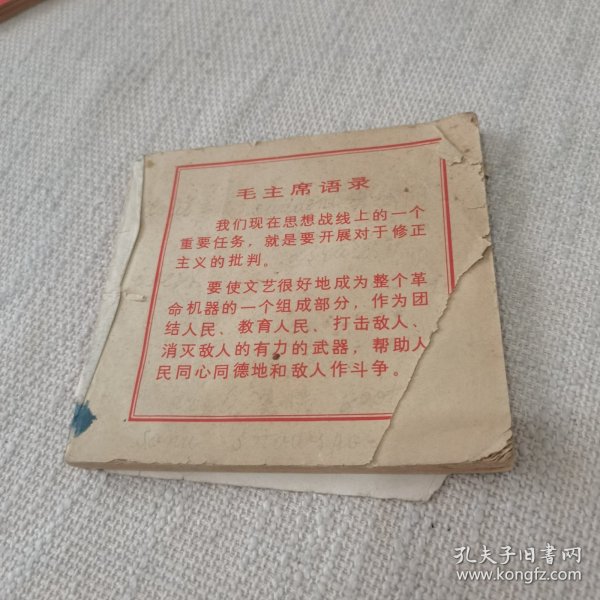 毛主席语录
我们现在思想战线上的一个
重要任务，就是要开展对于修正
主义的批判。
要使文艺很好地成为整个革
命机器的一个组成部分，作为团
结人民、教育人民、打击敌人、
消灭敌人的有力的武器，帮助人
民同心同德地和敌人作斗争。
孔夫子旧书网
www.kongfz.com